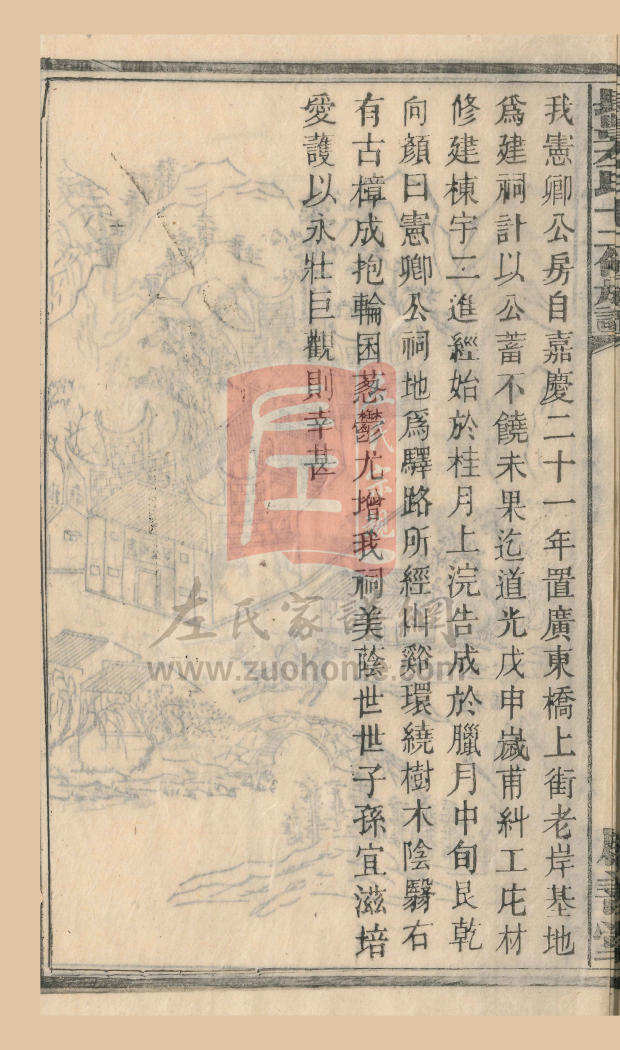 我憲卿公房自嘉慶二十一年置廣東橋上街老岸基地
爲建祠計以公蓄不饒未果迄道光戊申歲甫糾工庀材
修建棟宇三進經始於桂月上浣告成於臘月中旬艮乾
向顔曰憲卿公祠地爲驛路所經山谿環繞樹木陰翳右
有古樟成抱輪囷蔥鬱尤增我祠美蔭世世子孫宜滋培
愛護以永壯巨觀則幸甚
左氏家譜網
www.zuohome.com